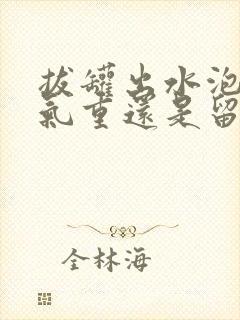 拔罐出水泡
氣重還是留
全林海